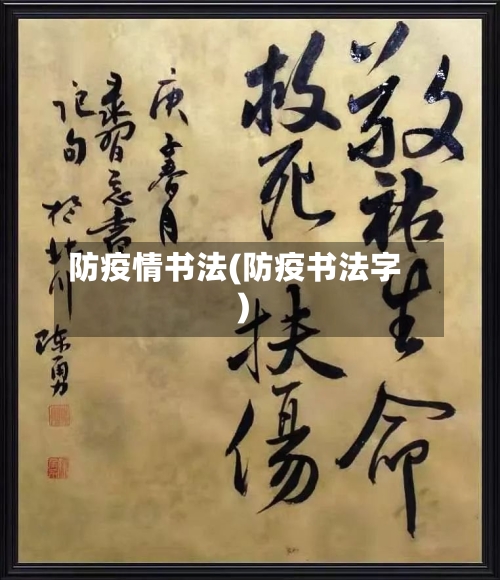 敬祐生命
救死扶傷
庚子春月
录習总書
记句於北川陈勇
防疫情书法(防疫书法字
)